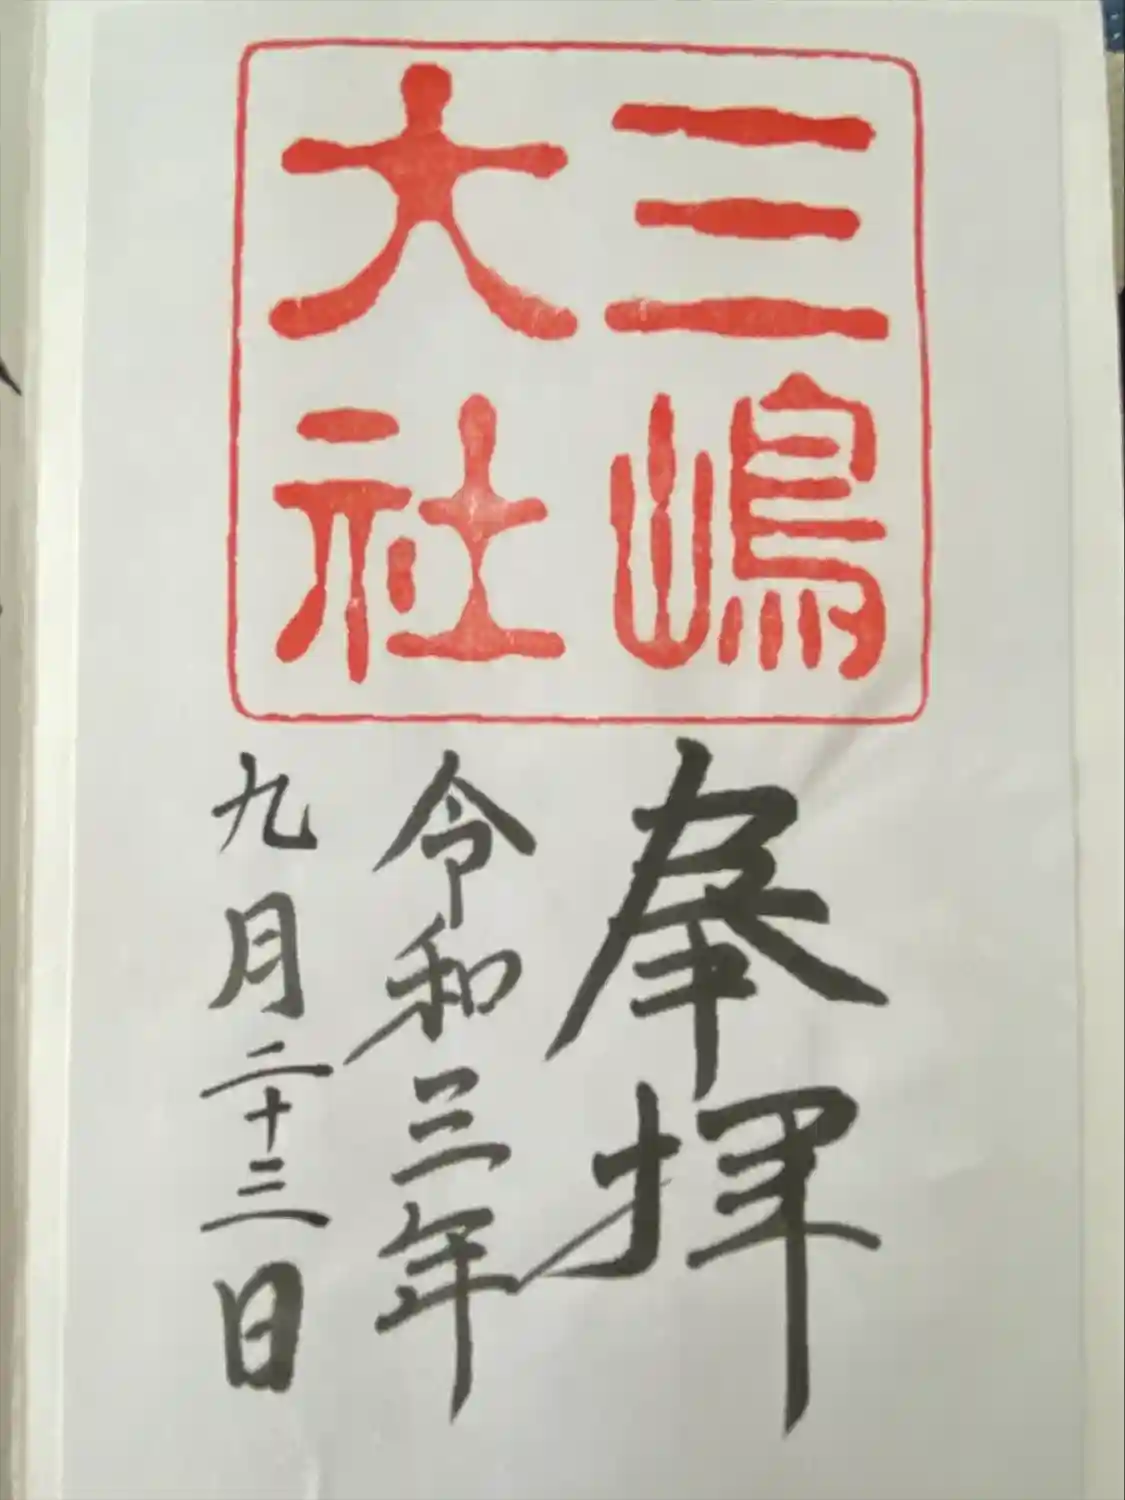 三嶋
大社
奉拝
令和三年
九月二十三日